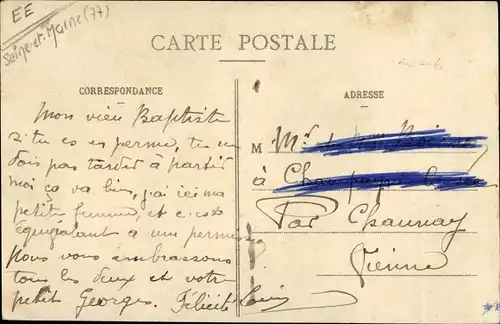 EE
Seine-et-Marne (77)
CARTE POSTALE
CORRESPONDANCE
ADRESSE
Mon vieu Baptiste
si tu es en perme, tu ne
dois pas tarder à partir
moi ça va bien, j'ai ici ma
petite femme, et c'est
équivalant a un permission
Nous vous embrassons
tous les deux et votre
petit Georges. Félicité Louis
M Mr
à
Par Chaunay
Vienne